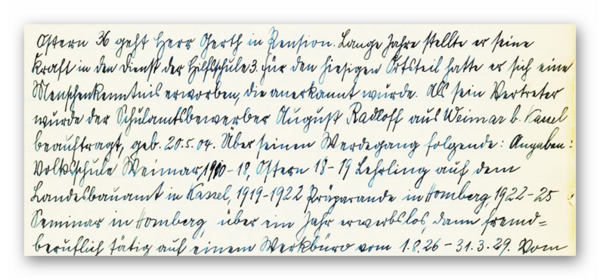 Ostern 36 geht Herr Gerth in Pension. Lange Jahre stellte er seine
Kraft in den Dienst der Hilfsschule 3. Für den hiesigen Ortsteil hatte er sich eine
Menschenkenntnis erworben, die anerkannt wurde. Als sein Vertreter
wurde der Schulamtsbewerber August Radloff aus Weimar b. Kassel
beauftragt, geb. 20.5.04. Über seinen Werdegang folgende: Angaben:
Volksschule Weimar, 1910-18, Ostern 18-19 Lehrling auf dem
Landesbauamt in Kassel, 1919-1922 Präparande in Homberg, 1922-25
Seminar in Homberg, über ein Jahr erwerbslos, dann fremd=
beruflich tätig auf einem Werkbüro vom 1.8.26-31.3.29. Vom